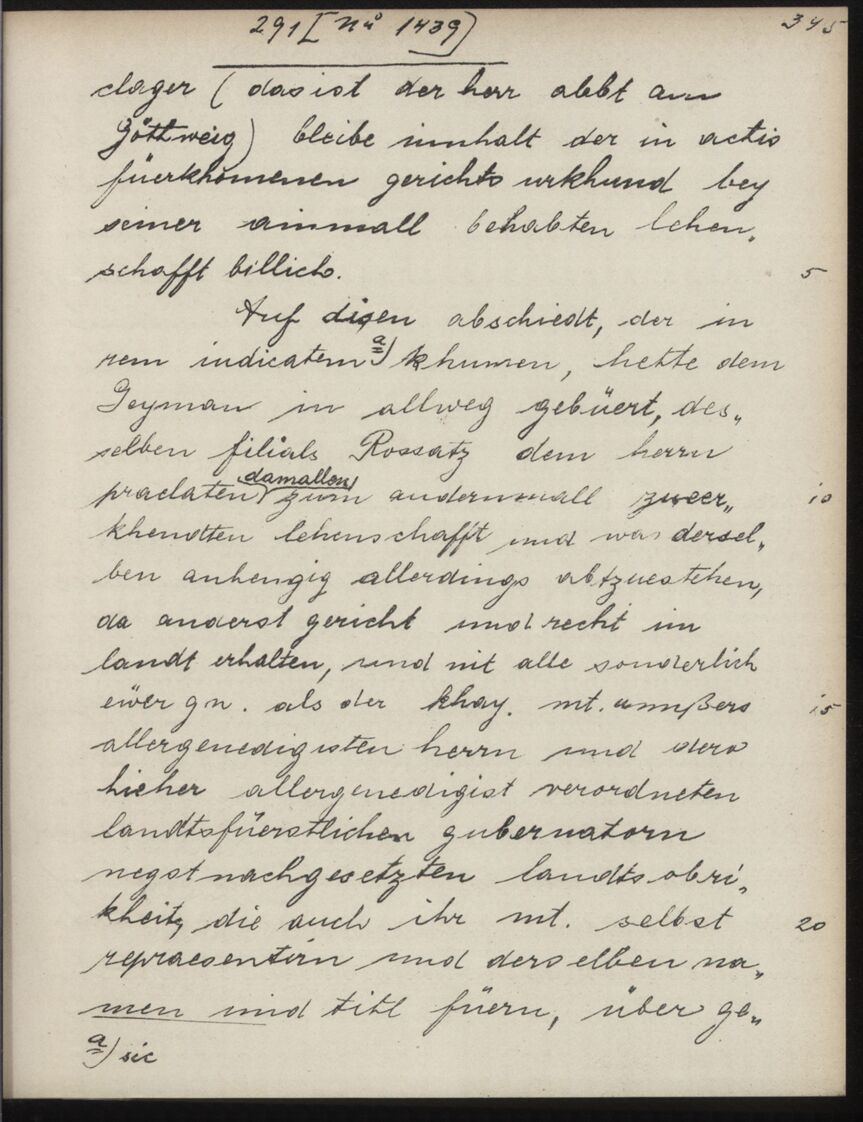 291 [Nro 1439] 345
clager (das ist der herr abbt am
Göttweig) bleibe innhalt der in actis
füerkhomenen gerichts urkhund bey
seiner ainmall behabten lehen„
schafft billich.
5
Auf disen abschiedt, der in
rem iudicatem a) khumen, hette dem
Geyman in allweg gebüert, des„
selben filials Rossatz dem herrn
praelaten damallen zum andernmall zueer„
10
khendten lehenschafft und was dersel„
ben anhengig allerdings abtzuestehen,
da anderst gericht und recht im
landt erhalten, und nit alle sonderlich
ewer gn. als der khay. mt. unnßers
15
allergenedigisten herrn und dero
hieher allergenedigist verordneten
landtsfüerstlichen gubernatorn
negst nachgesetzten landtsobri„
kheit, die auch ihr mt. selbst
20
repraesentirn und derselben na„
men und titl füern, über ge„
a) sic